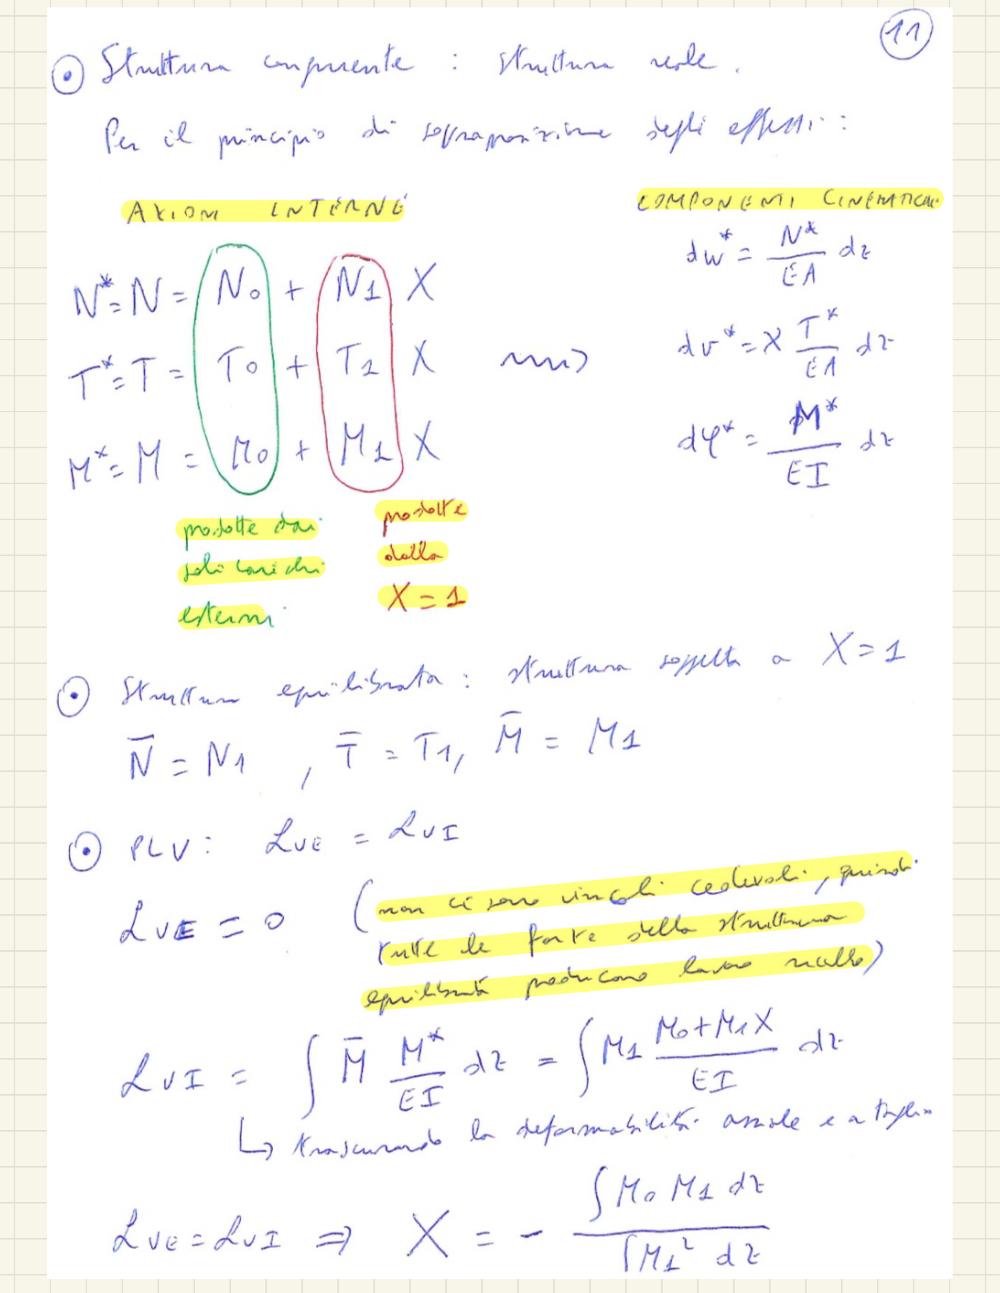 11
Struttura congruente : struttura reale.
Per il principio di sovrapposizione degli effetti :
AZIONI INTERNE
COMPONENTI CINEMATICHE
N* = N = N₀ + N₁ X
dw* = N*/EA dz
T* = T = T₀ + T₁ X
dv* = χ T*/EA dz
M* = M = M₀ + M₁ X
dφ* = M*/EI dz
prodotte dai
soli carichi
esterni
prodotte
dalla
X = 1
Struttura equilibrata : struttura soggetta a X = 1
N̄ = N₁ , T̄ = T₁, M̄ = M₁
PLV : LVE = LVI
LVE = 0 (non ci sono vincoli cedevoli, quindi
tutte le forze della struttura
equilibrata producono lavoro nullo)
LVI = ∫ M̄ M*/EI dz = ∫ M₁ (M₀+M₁X)/EI dz
↳ trascurando la deformabilità assiale e a taglio
LVE = LVI ⇒ X = - ∫M₀ M₁ dz / ∫M₁² dz